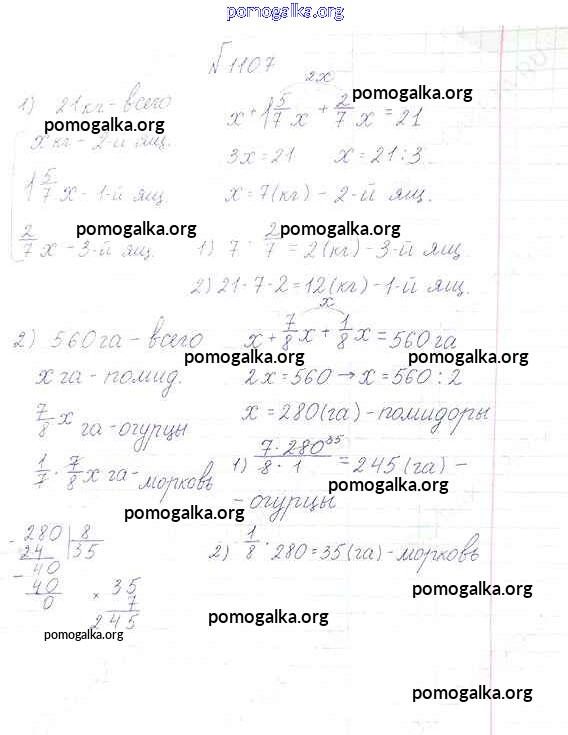 pomogalka.org
№1107
1) 21 кг - всего
x кг - 2-й ящ.
1 5/7 x - 1-й ящ.
2/7 x - 3-й ящ.
2x
x + 1 5/7 x + 2/7 x = 21
3x = 21 x = 21 : 3
x = 7 (кг) - 2-й ящ.
1) 7 · 2/7 = 2 (кг) - 3-й ящ.
2) 21 - 7 - 2 = 12 (кг) - 1-й ящ.
2) 560 га - всего
x га - помид.
7/8 x га - огурцы
1/7 · 7/8 x га - морковь
x
x + 7/8 x + 1/8 x = 560 га
2x = 560 → x = 560 : 2
x = 280 (га) - помидоры
1) 7 · 280 35 / 8 · 1 = 245 (га) -
- огурцы
2) 1/8 · 280 = 35 (га) - морковь
280 | 8
24 | 35
- 40
40
0
× 35
7
245
pomogalka.org
pomogalka.org
pomogalka.org
pomogalka.org
pomogalka.org
pomogalka.org
pomogalka.org
pomogalka.org
pomogalka.org
pomogalka.org
pomogalka.org
pomogalka.org